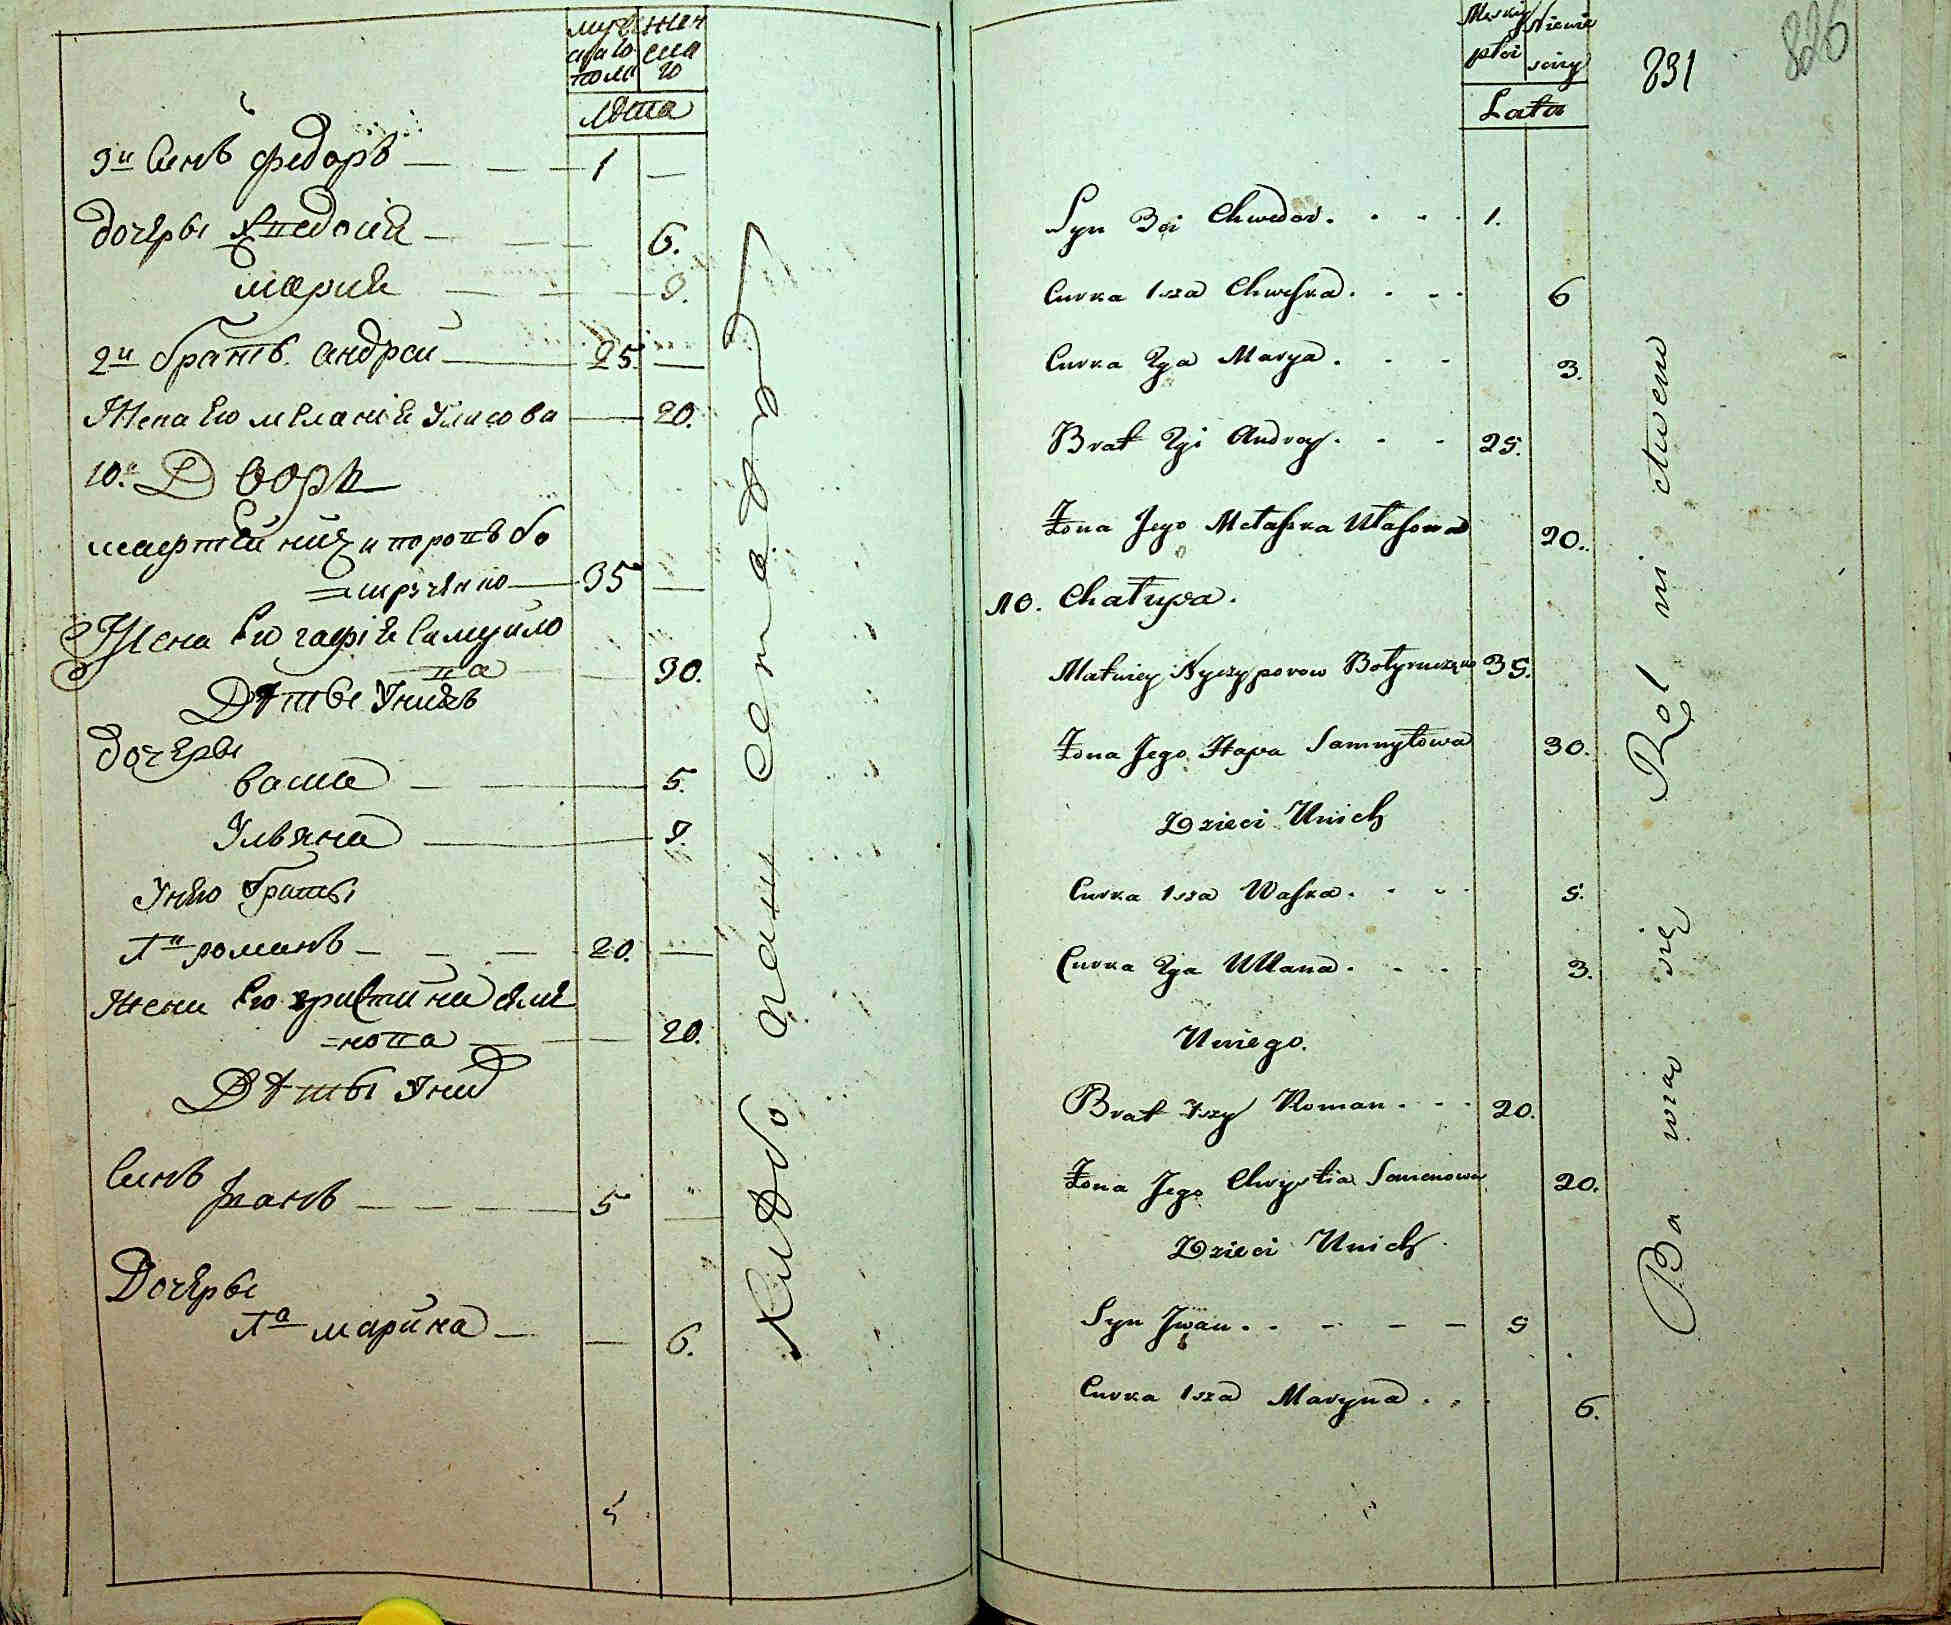 мужескаго пола
женскаго
лѣта
3й Синъ федоръ 1
дочеры
6.
мария 3.
2й братъ андрей 25.
Жена его мелания Уласова 20.
10. Дворъ
35
Жена его гафия Самуйло
ва 30.
Дѣты Унихъ
дочеры
васка 5.
Ульяна 3.
Унего браты
1й романъ 20.
Жена его христина семе
=нова 20.
Дѣты Уних
Синъ
Иванъ 5
Дочеры
1а марина 6.
5
Хлѣбо паше
Mezkiy płci
Niewie sciey
Lata
831
826
Syn 3ci Chwedor. 1.
Curka 1sza Chweska. 6
Curka 2ga Marya. 3.
Brat 2gi Andrey. 25.
Żona Jego Melaska Ułasowa 20.
10. Chałupa.
Matwiey Nyczyporow 35.
Żona Jego Hapa Samuyłowa 30.
Dzieci Unich
Curka 1sza Waska. 5.
Curka 2ga Ullana. 3.
Uniego.
Brat 1szy Roman. 20.
Żona Jego Chrystia Semenowa 20.
Dzieci Unich.
Syn Jwan. 5
Curka 1sza Maryna. 6.
Ba wia się Rol ni ctwem